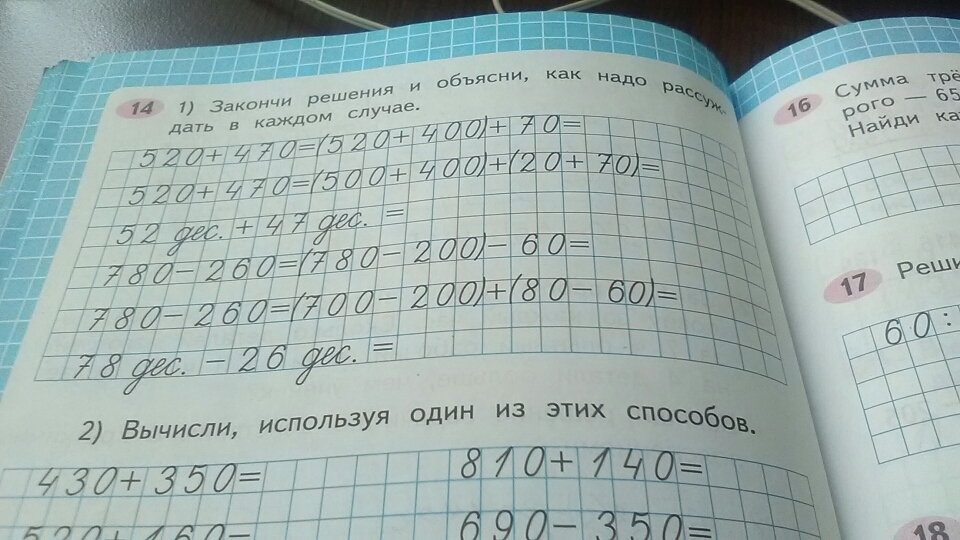 14 1) Закончи решения и объясни, как надо рассуж-
дать в каждом случае.
520+470=(520+400)+70=
520+470=(500+400)+(20+70)=
52 дес. + 47 дес. =
780-260=(780-200)-60=
780-260=(700-200)+(80-60)=
78 дес. - 26 дес. =
2) Вычисли, используя один из этих способов.
430+350= 810+140=
690-350=
16 Сумма трё
рого — 65
Найди ка
17 Реши
60:
18